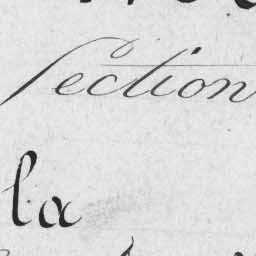 Section
la